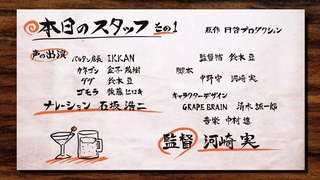 本日のスタッフ その1
声の出演
バルタン店長 IKKAN
カネゴン 金子茂樹
ダダ 鈴木豆
ゴモラ 佐藤ヒロキ
ナレーション 石坂浩二
原作 円谷プロダクション
監督補 鈴木豆
脚本 中野守 河崎実
キャラクターデザイン
GRAPE BRAIN 清水誠一郎
音楽 中村遼
監督 河崎実